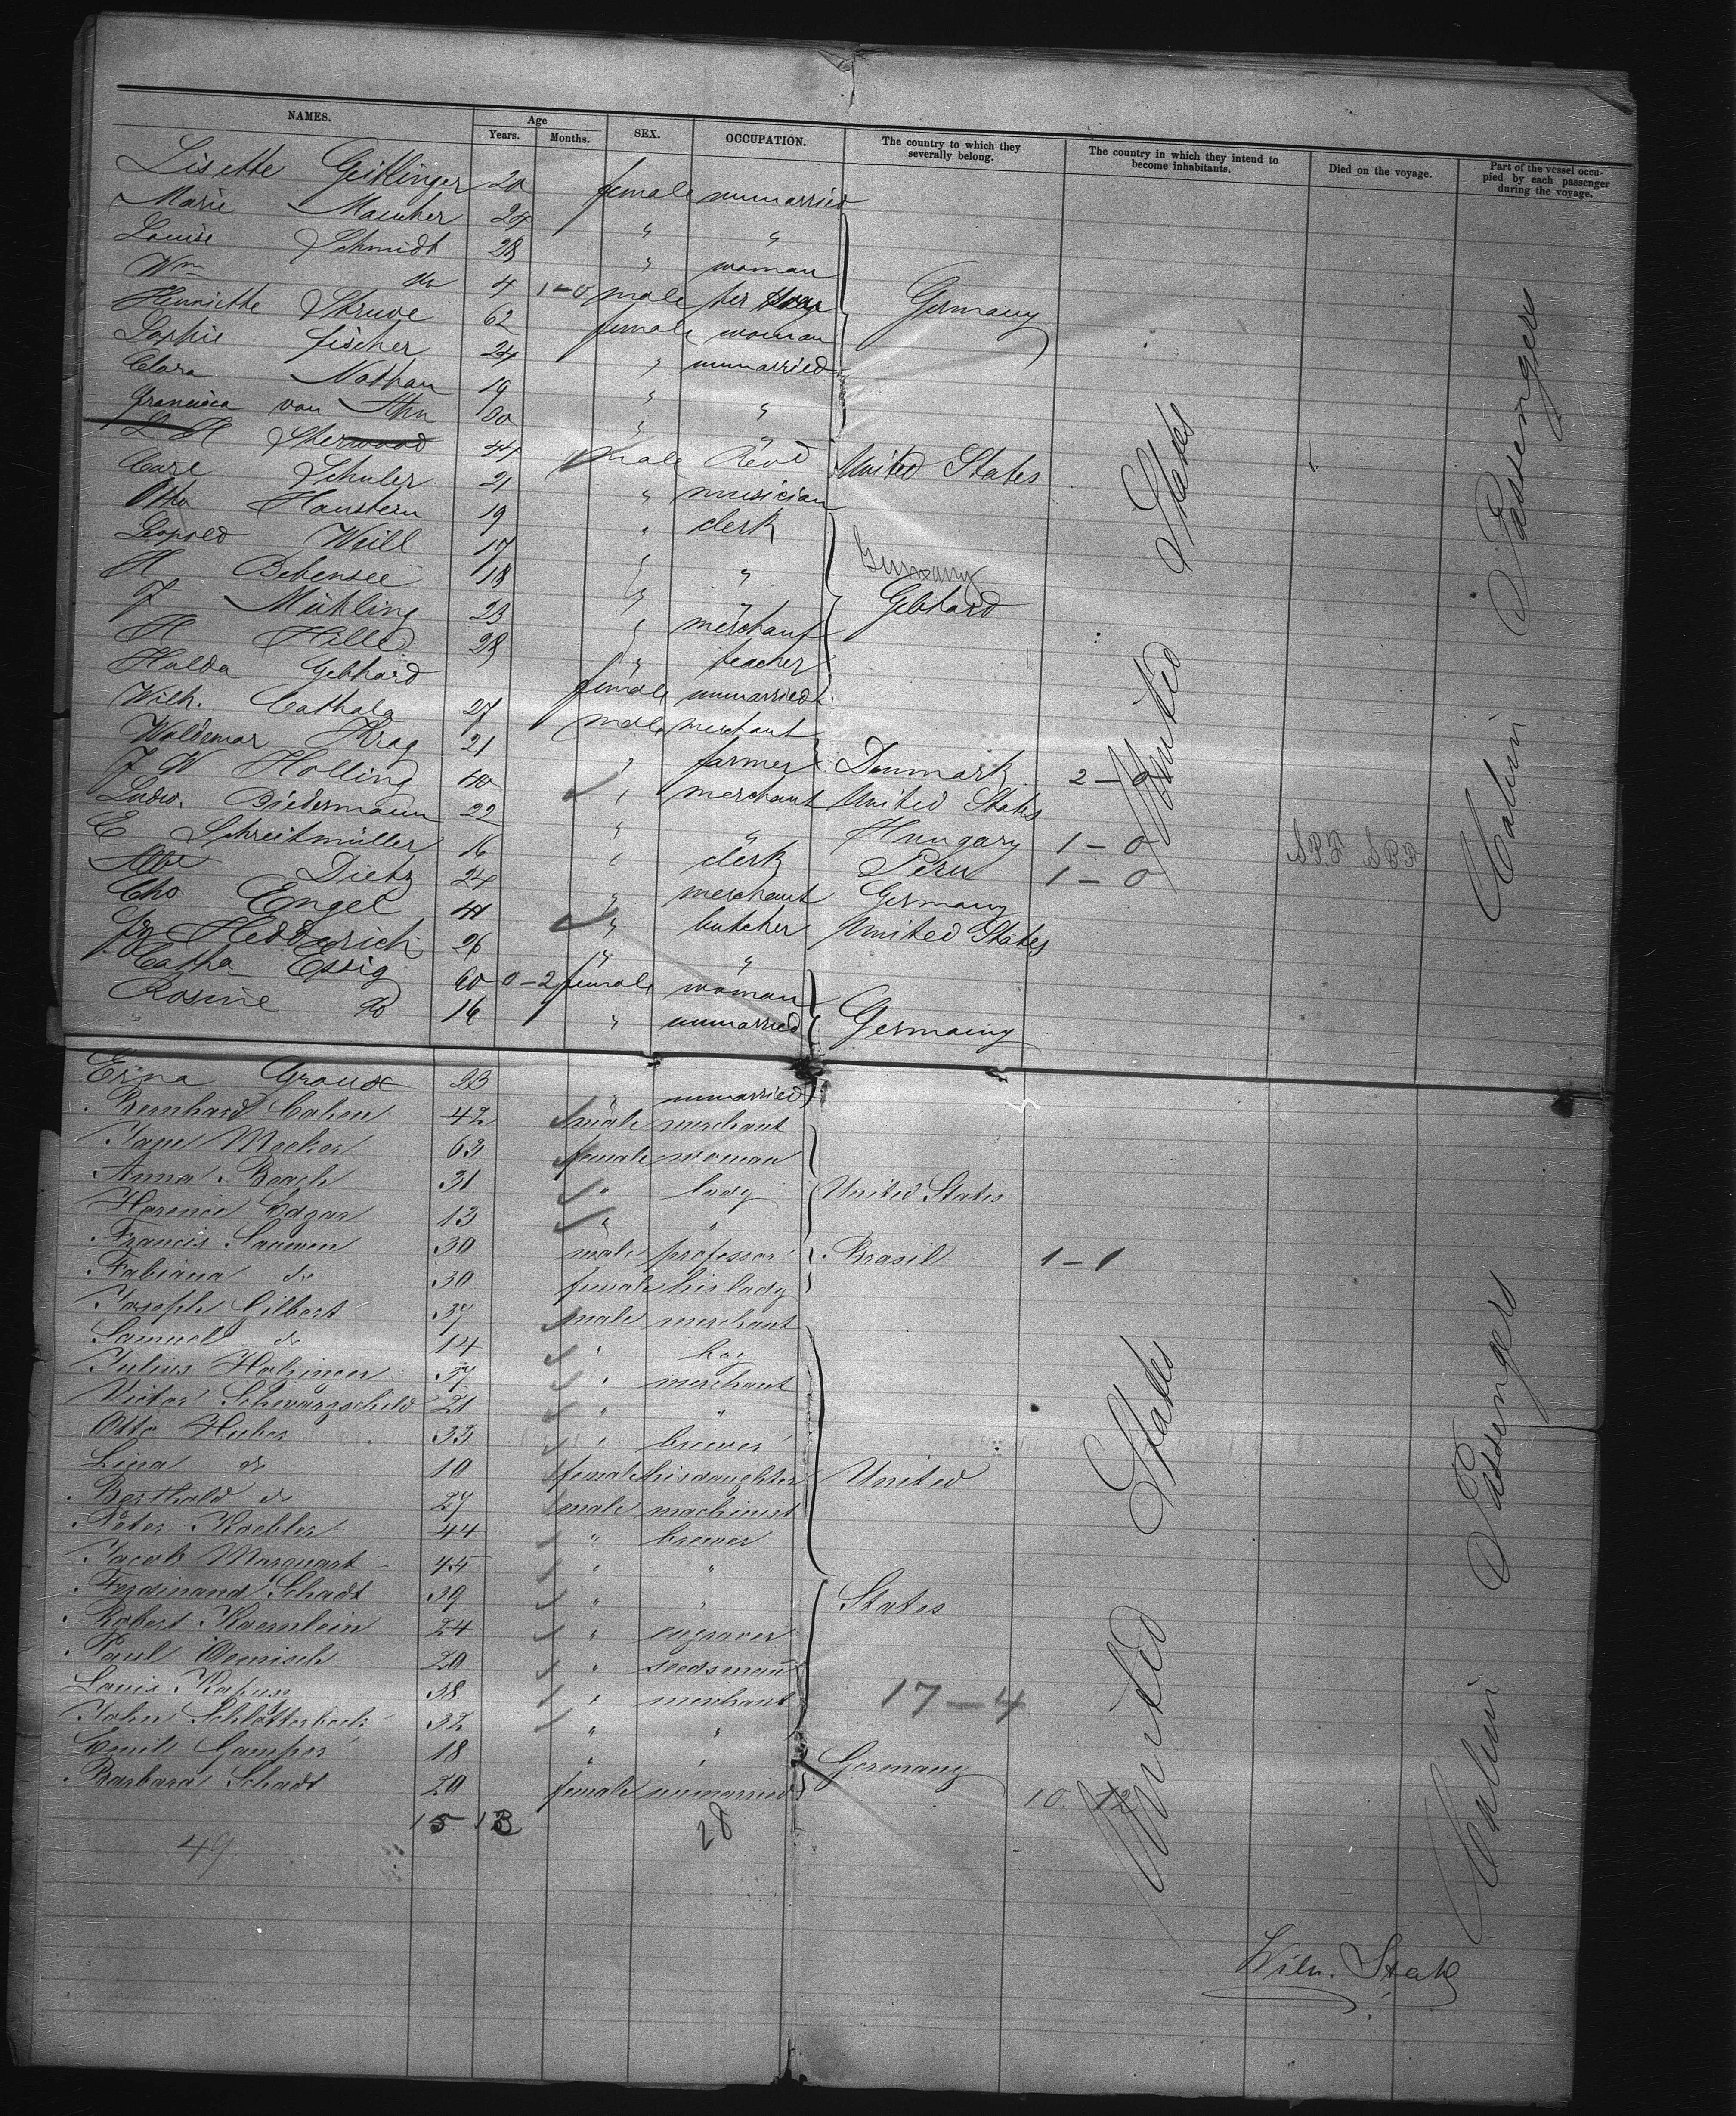 NAMES. Age Years. Months. SEX. OCCUPATION. The country to which they severally belong. The country in which they intend to become inhabitants. Died on the voyage. Part of the vessel occupied by each passenger during the voyage.
Lisette Geitlinger 20 female unmarried
Marie 24 " "
Louise Schmidt 28 " woman
Wm do 4 1-0 male her
Henriette Struve 62 female woman Germany
Sophie Fischer 24 " unmarried
Clara Nathan 19 " "
Francisca von Ahn "
L H Sherwood 44 male Revd United States "
Carl Schuler 21 " musician
Otto Haustern 19 " clerk
Leopold Weill 17 " " Germany
H Bebensee 18 " " Gebhard
J Mühling 23 " merchant
H Hille 28 " teacher
Hulda Gebhard female unmarried
Wilh. Cathala 27 male merchant
Waldemar Krag 21 " farmer Denmark 2-0
J W Holling 40 " merchant United States
Ludw. Biedermann 22 " " Hungary 1-0
E Schreitmüller 16 " clerk Peru 1-0
Dietz 24 " merchant Germany
Chs Engel 41 " butcher United States
Hedderich 26 " "
Catha Essig 60 0-2 female woman
Rosine do 16 " unmarried Germany
United States
Cabin Passengers
Erna 23 " unmarried
Bernhard Cahen 42 male merchant
Jane 63 female woman
Anna Beach 31 " lady United States
Florence Edgar 13 " "
Francis 30 male professor Brasil 1-1
Fabiana do 30 female his lady
Joseph Gilbert 37 male merchant
Samuel do 14 " boy
Julius 37 " merchant
Victor Schwarzschild 21 " "
Otto Huber 33 " brewer
Lina do 10 female his daughter United
Berthold do 27 male machinist
Peter Koehler 44 " brewer
Jacob Marquart 45 " "
Ferdinand Schadt 39 " " States
Robert Kaemlein 24 " engraver
Paul Oemisch 20 " seedsman
Louis 38 " merchant 17-4
John Schlotterbeck 32 " "
Emil Gamper 18 " " Germany
Barbara Schadt 20 female unmarried 10. 12
15 13 28
49
United States
Cabin Passengers
Wilh.